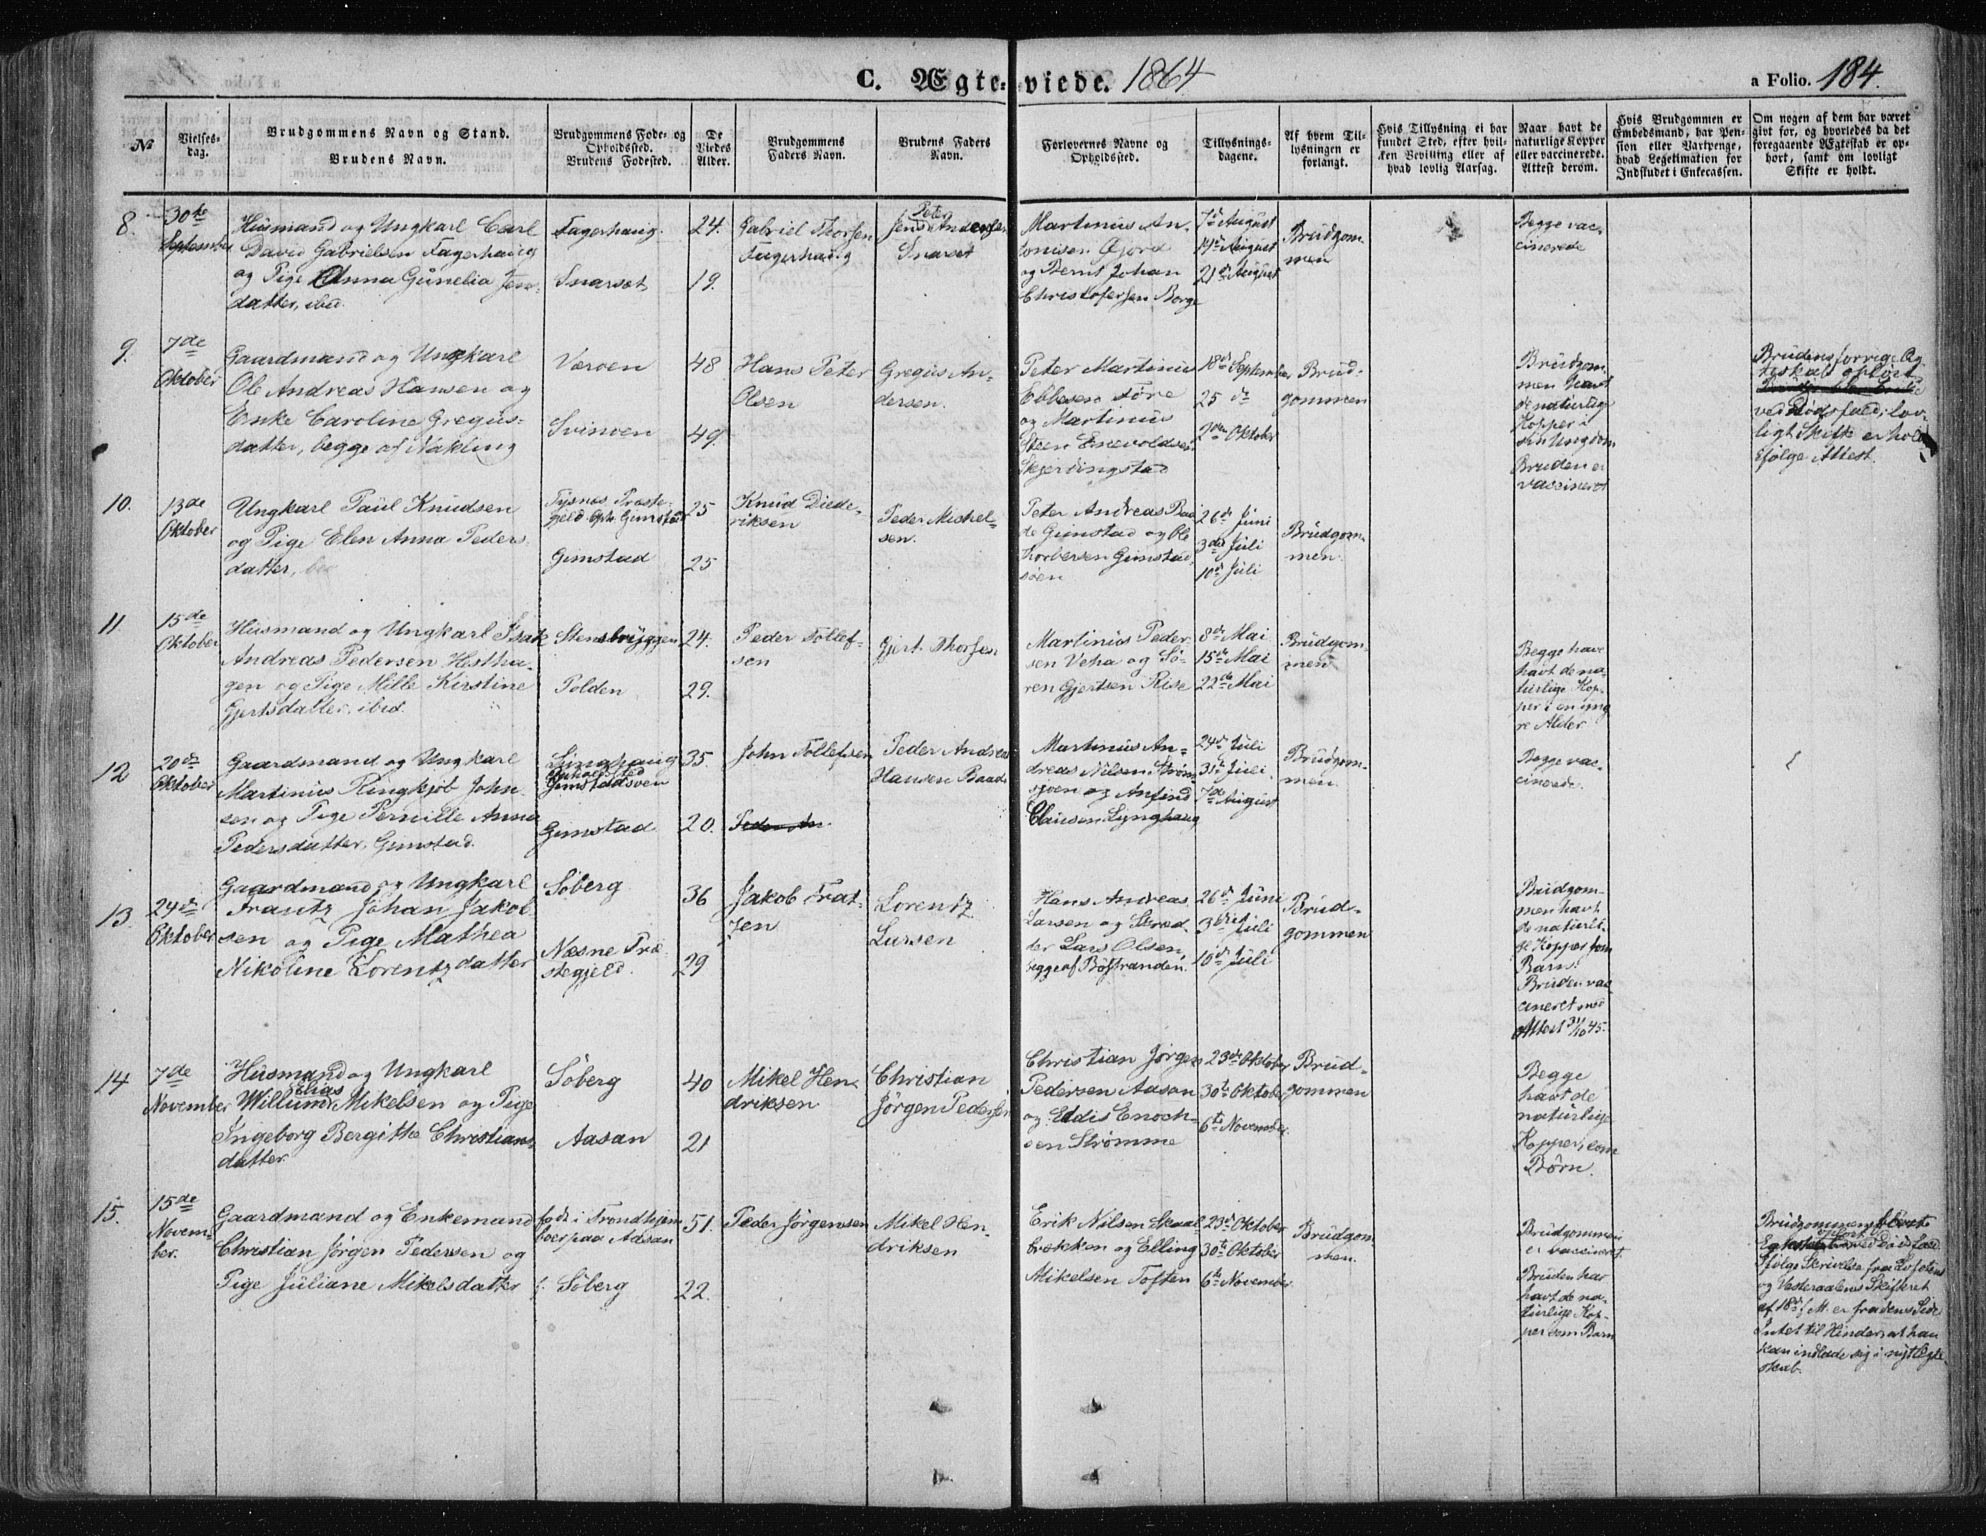 C. Ægteviede. 1864
a Folio. 184.
№
Vielsesdag.
Brudgommens Navn og Stand.
Brudens Navn.
Brudgommens Fode- og
Opholdssted.
Brudens Fodested.
De
Viedes
Alder.
Brudgommens
Faders Navn.
Brudens Faders
Navn.
Forlovernes Navne og
Opholdssted.
Tillysnings-
dagene.
Af hvem Til-
lysningen er
forlangt.
Hvis Tillysning ei har
fundet Sted, efter hvil-
ken Bevilling eller af
hvad lovlig Aarsag.
Naar havt de
naturlige Kopper
eller vaccinerede.
Attest derom.
Hvis Brudgommen er
Embedsmand, har Pen-
sion eller Vartpenge,
hvad Legetimation for
Indskudet i Enkecassen.
Om nogen af dem har været
givt for, og hvorledes da det
foregaaende Ægteskab er op-
hort, samt om lovligt
Skifte er holdt.
8.
30te
September
Husmand og Ungkarl Carl
David Gabrielsen Fagerhaug
og Pige Anna Gunelia Jens-
datter, ibid.
Fagerhaug.
Snarset
24.
19.
Gabriel Thorsen
Fagerhaug
Peter
Jens Andersen
Snarset
Martinus An-
tonisen Øjord
og Bernt Johan
Christofersen Borge
7de August
14de August
21de August
Brudgom-
men
Begge vac-
cinerede
9.
7de
Oktober
Gaardmand og Ungkarl
Ole Andreas Hansen og
Enke Caroline Gregus-
datter, begge af Nakling
Værøen
Svinøen
48
49.
Hans Peter
Olsen
Gregus An-
dersen.
Peter Martinus
Ebbesen Føre
og Martinus
Steen Enevoldsen
Skjerdingstad
18de September
25 de
2den Oktober
Brud-
gommen
Brudgom-
men havt
de naturlige
Kopper i
sin Ungdom
Bruden er
vaccineret
Brudens forrige Æg
teskab opløst
ved Dødsfald; lov-
ligt Skifte er hold
Efølge Attest.
10.
13de
Oktober
Ungkarl Paul Knudsen
og Pige Elen Anna Peders
datter,
Tysnes Præste-
gjeld Oph. Gimstad
Gimstad
25
25
Knud Diede-
riksen
Peder Mikkel-
sen.
Peter Andreas
de Gimstad og Ole
Thorbersen Gimstad
søen
26de Juni
3de Juli
10de Juli
Brudgom-
men.
11
15de
Oktober
Husmand og Ungkarl Isak
Andreas Pedersen Hestha-
gen og Pige Mille Kirstine
Gjertsdatter, ibid.
Stensbryggen
Polden
24.
29.
Peder Tollef-
sen
Gjert Thorsen
Martinus Peder
sen Veha og Sø-
ren Gjertsen Rise
8de Mai
15de Mai
22de Mai
Brudgom-
men
Begge have
havt de na-
turlige Kop-
per i en yng
re Alder
12
20de
Oktober
Gaardmand og Ungkarl
Martinus Ringkjøb John-
sen og Pige Pernille Anna
Pedersdatter, Gimstad.
Linghaug
Opholdssted
Gimstadsøen
Gimstad
35.
20.
John Tollefsen
Peder An
Peder Andreas
Hansen Baads
Martinus An-
dreas Nilsen Strøm
søen og Anfind
Clausen Lynghaug
24de Juli
31te Juli
7de August
Brudgom-
men.
Begge vac-
cinerede.
13.
24de
Oktober
Gaardmand og Ungkarl
Frantz Johan Jakob-
sen og Pige Mathea
Nikoline Lorentzdatter
Søberg
Næsne Præ-
stegjeld.
36
29
Jakob Frat-
zen
Lorentz
Larsen
Hans Andreas
Larsen og Skred-
der Lars Olsen,
begge af Bøstranden.
26de Juni
3die Juli
10de Juli
Brud-
gommen
Brudgom-
men havt
de naturli-
ge Kopper som
Barn.
Bruden vac-
cineret med
Attest 31/10 45.
14
7de
November
Husmand og Ungkarl
Elias
Willum Mikelsen og Pige
Ingeborg Bergitte Christians
datter
Søberg
Aasan
40
21
Mikel Hen-
driksen
Christian
Jørgen Pedersen
Christian Jørgen
Pedersen Aasan
og Eddis Enoch-
sen Strømme
23de Oktober
30te Oktober
6te November
Brud-
gommen
Begge
havt de
naturlige
Kopper, som
Børn.
15.
15de
Novem-
ber.
Gaardmand og Enkemand
Christian Jørgen Pedersen og
Pige Juliane Mikelsdatter
født i Trondhjem
boer paa Aasan
f. Søberg
51.
22.
Peder Jørgensen
Mikel Hen-
driksen
Erik Nilsen Skaal-
brækken og Elling
Mikelsen Toften
23de Oktober
30te Oktober
6te November
Brudgom
men.
Brudgommen
er vaccineret.
Bruden har
havt de na-
turlige Kop-
per som Barn
Brudgommens
ved Dødsfald
Ifølge Skrivelse fra Lofotens
og Vesteraalens Skifteret
af 18de f. M. er fra dens Side
Intet til Hinder, at han
kan indlade sig i nyt Ægte-
skab.